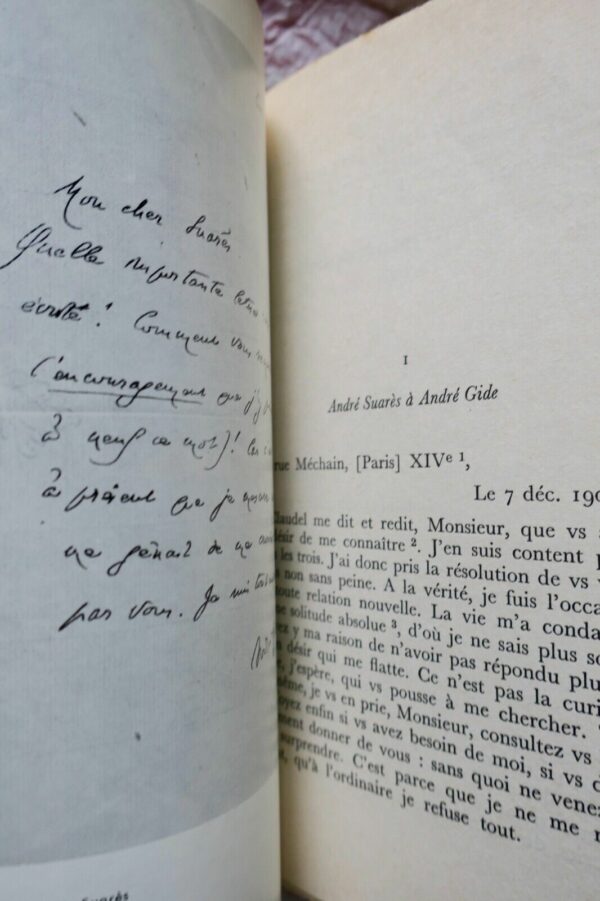 Mon cher Suarès
Quelle importante lettre
écrite ! Comment vous
l'encouragement que j'y
à neuf ce mot) !
à présent que je
me gênait de me
par vous. Je
Suarès
I
André Suarès à André Gide
rue Méchain, [Paris] XIVe 1,
Le 7 déc. 190
Claudel me dit et redit, Monsieur, que vs
désir de me connaître 2. J'en suis content
les trois. J'ai donc pris la résolution de vs
non sans peine. A la vérité, je fuis l'occa
toute relation nouvelle. La vie m'a conda
solitude absolue 3, d'où je ne sais plus so
y ma raison de n'avoir pas répondu plu
désir qui me flatte. Ce n'est pas la curi
j'espère, qui vs pousse à me chercher.
même, je vs en prie, Monsieur, consultez vs
voyez enfin si vs avez besoin de moi, si vs d
donner de vous : sans quoi ne venez
surprendre. C'est parce que je ne me
qu'à l'ordinaire je refuse tout.